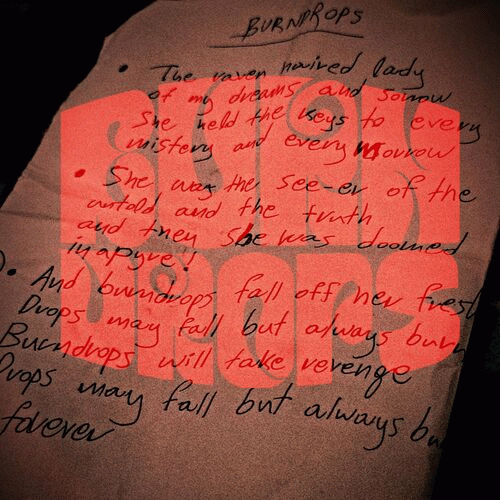 BURNDROPS
BURN
DROPS
• The raven haired lady
of my dreams and sorrow
She held the keys to every
mistery and every morrow
• She was the see-er of the
untold and the truth
and they she was doomed
in a pyre!
• And burndrops fall off her fresh
Drops may fall but always burn
Burndrops will take revenge
Drops may fall but always bu
forever